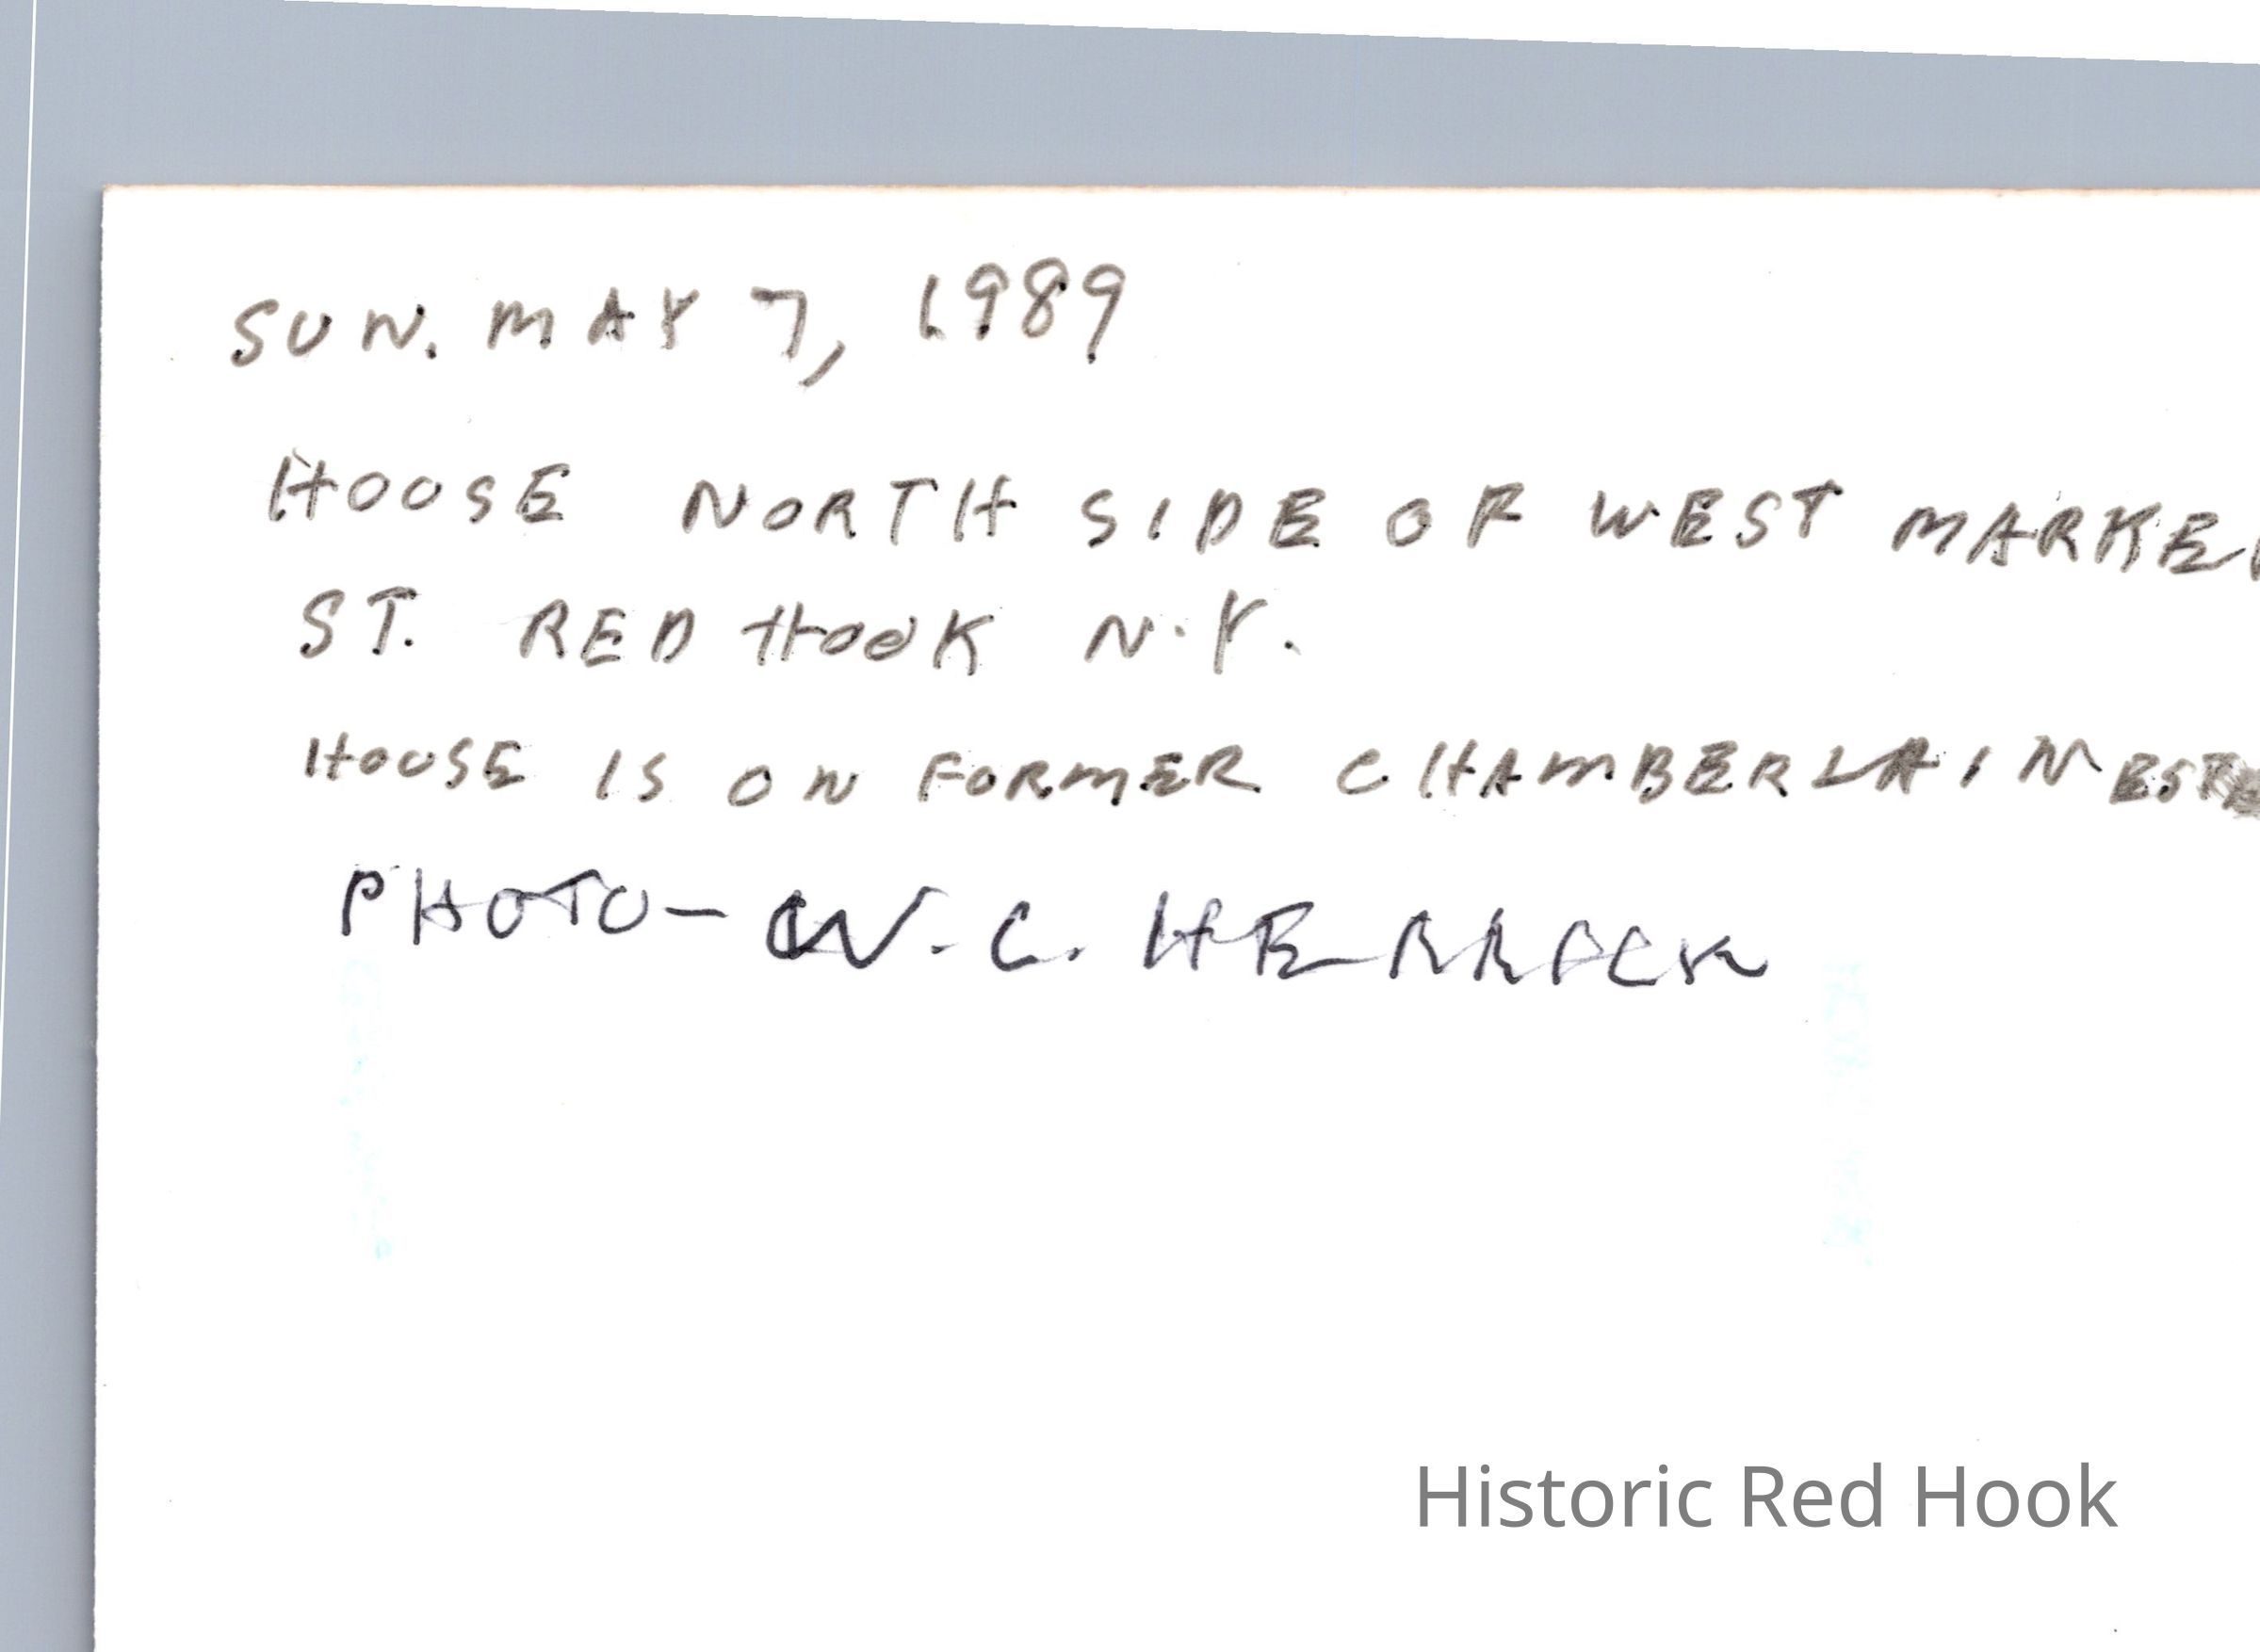 SUN. MAY 7, 1989
HOUSE NORTH SIDE OF WEST MARKE
ST. RED HOOK N.Y.
HOUSE IS ON FORMER CHAMBERLAIN
PHOTO - W. C. HERRICK
Historic Red Hook